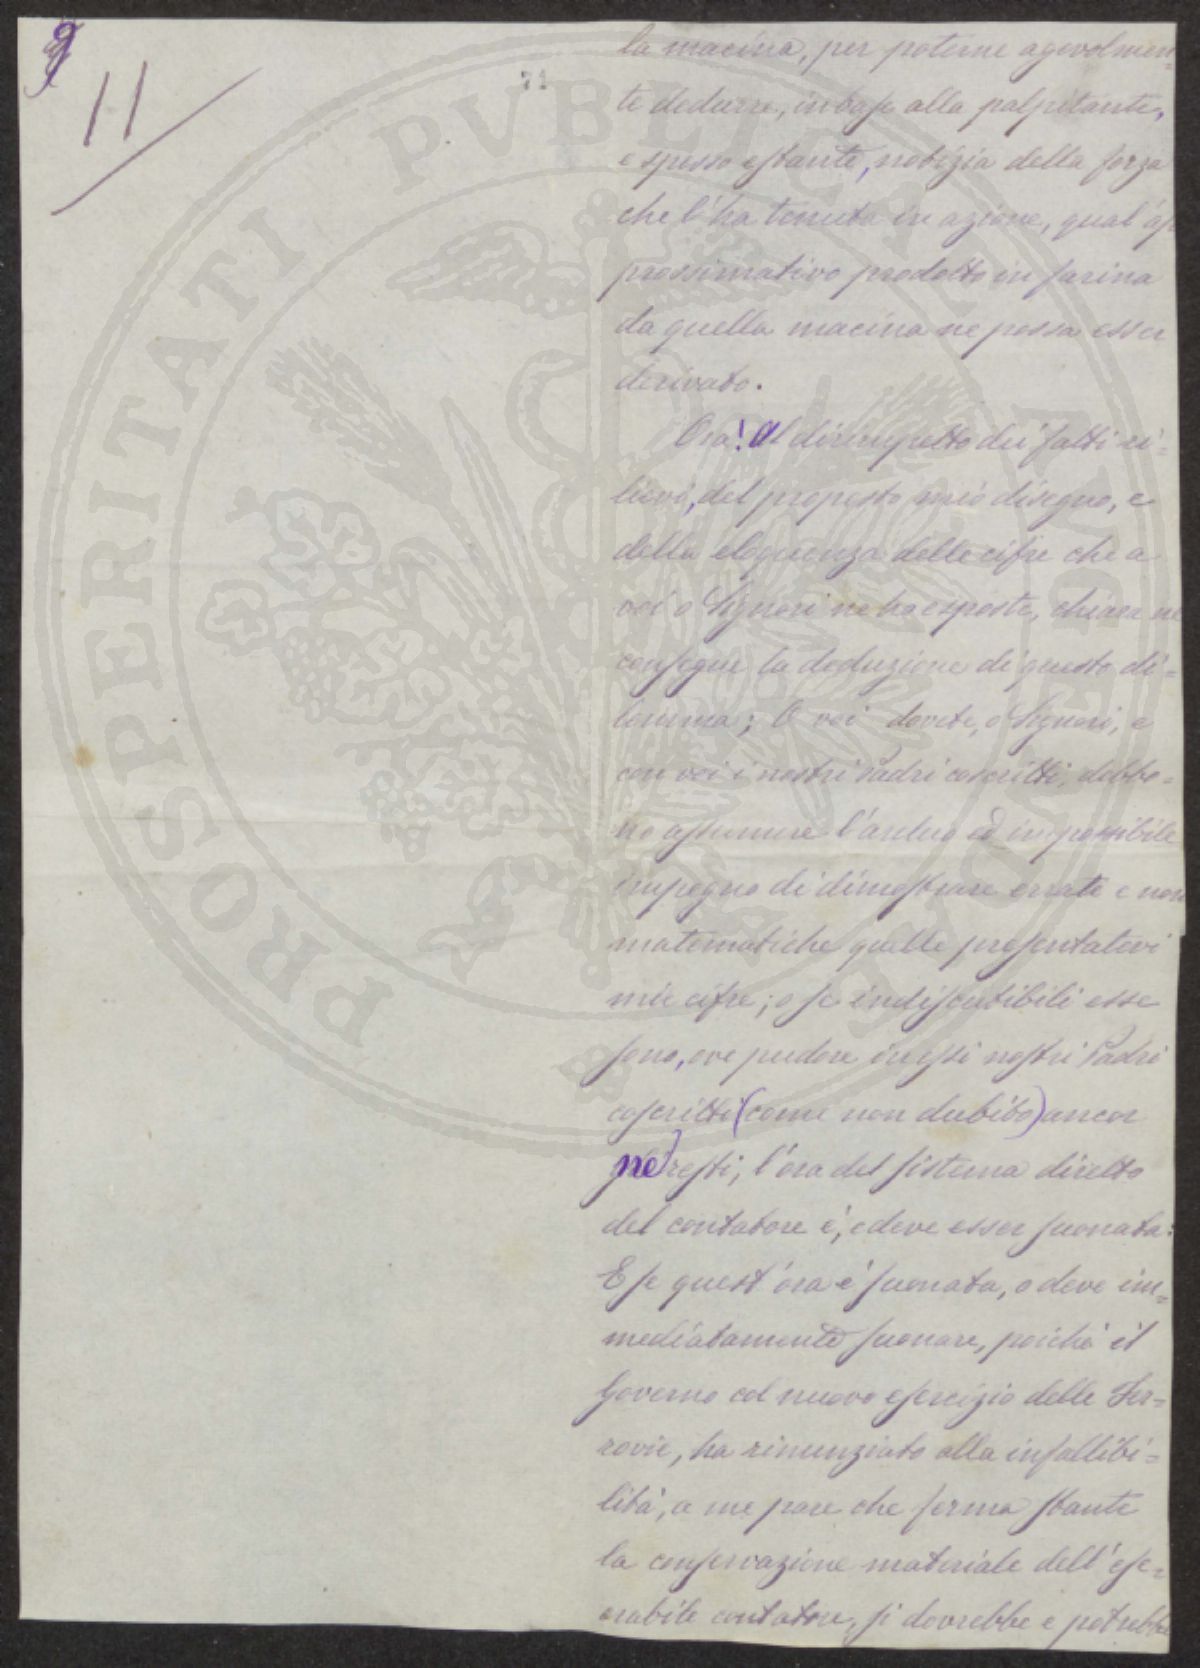 9
11
71
la macina, per poterne agevolmen-
te dedurre, in base alla palpitante,
e spesso estante, notizia della forza
che l'ha tenuta in azione, qual'ap
prossimativo prodotto in farina
da quella macina ne possa esser
derivato.
Ora! Al dirimpetto dei fatti ri-
lievi, del proposto mio disegno, e
della eloquenza delle cifre che a
voi o Signori ne ho esposte, chiara ne
consegue la deduzione di questo di-
lemma; O voi dovete, o Signori, e
con voi i nostri Padri coscritti, debbo-
no assumere l'arduo ed impossibile
impegno di dimostrare errate e non
matematiche quelle presentatevi
mie cifre; o se indiscutibili esse
sono, ove pudore in essi nostri Padri
coscritti (come non dubito) ancor
ne resti, l'ora del sistema diretto
del contatore è, e deve esser suonata:
E se quest'ora è suonata, o deve im-
mediatamente suonare, poichè il
Governo col nuovo esercizio delle Fer-
rovie, ha rinunziato alla infallibi-
lità, a me pare che ferma stante
la conservazione materiale dell'ese-
crabile contatore, si dovrebbe e potrebbe
PROSPERITATI PVBLICAE AVGENDAE